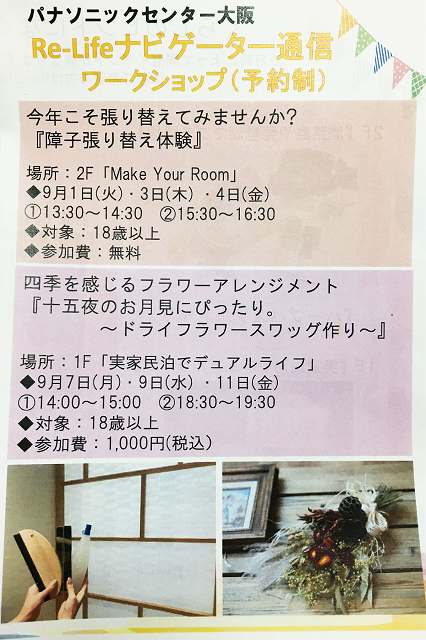 パナソニックセンター大阪
Re-Lifeナビゲーター通信
ワークショップ(予約制)
今年こそ張り替えてみませんか?
『障子張り替え体験』
場所：2F「Make Your Room」
◆9月1日(火)・3日(木)・4日(金)
①13:30～14:30 ②15:30～16:30
◆対象：18歳以上
◆参加費：無料
四季を感じるフラワーアレンジメント
『十五夜のお月見にぴったり。
～ドライフラワースワッグ作り～』
場所：1F「実家民泊でデュアルライフ」
◆9月7日(月)・9日(水)・11日(金)
①14:00～15:00 ②18:30～19:30
◆対象：18歳以上
◆参加費：1,000円(税込)